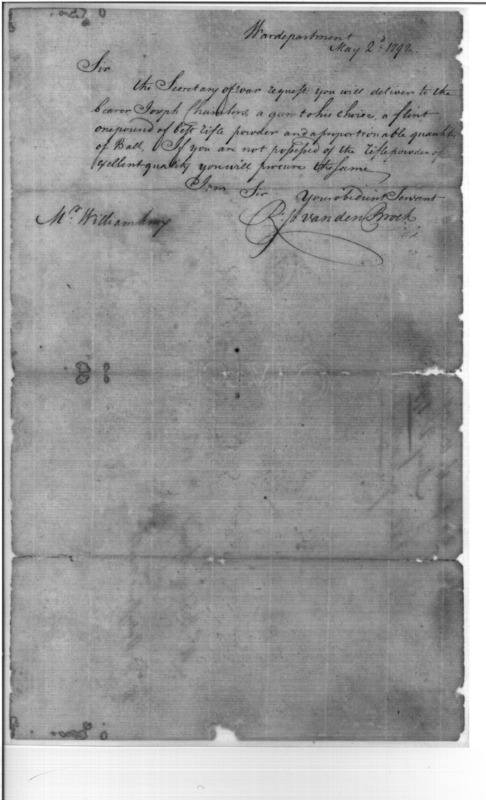 Wardepartment
May 2d 1792
Sir
the Secretary of war requests you will deliver to the
bearer Joseph Chambers, a gun to his choice, a flint
one pound of best rifle powder and a proportionable quantity
of Ball, If you are not possessed of the rifle powder of
excellent quality you will procure the same
I am Sir Your obedient Servant
B. van den Broek
Mr. William